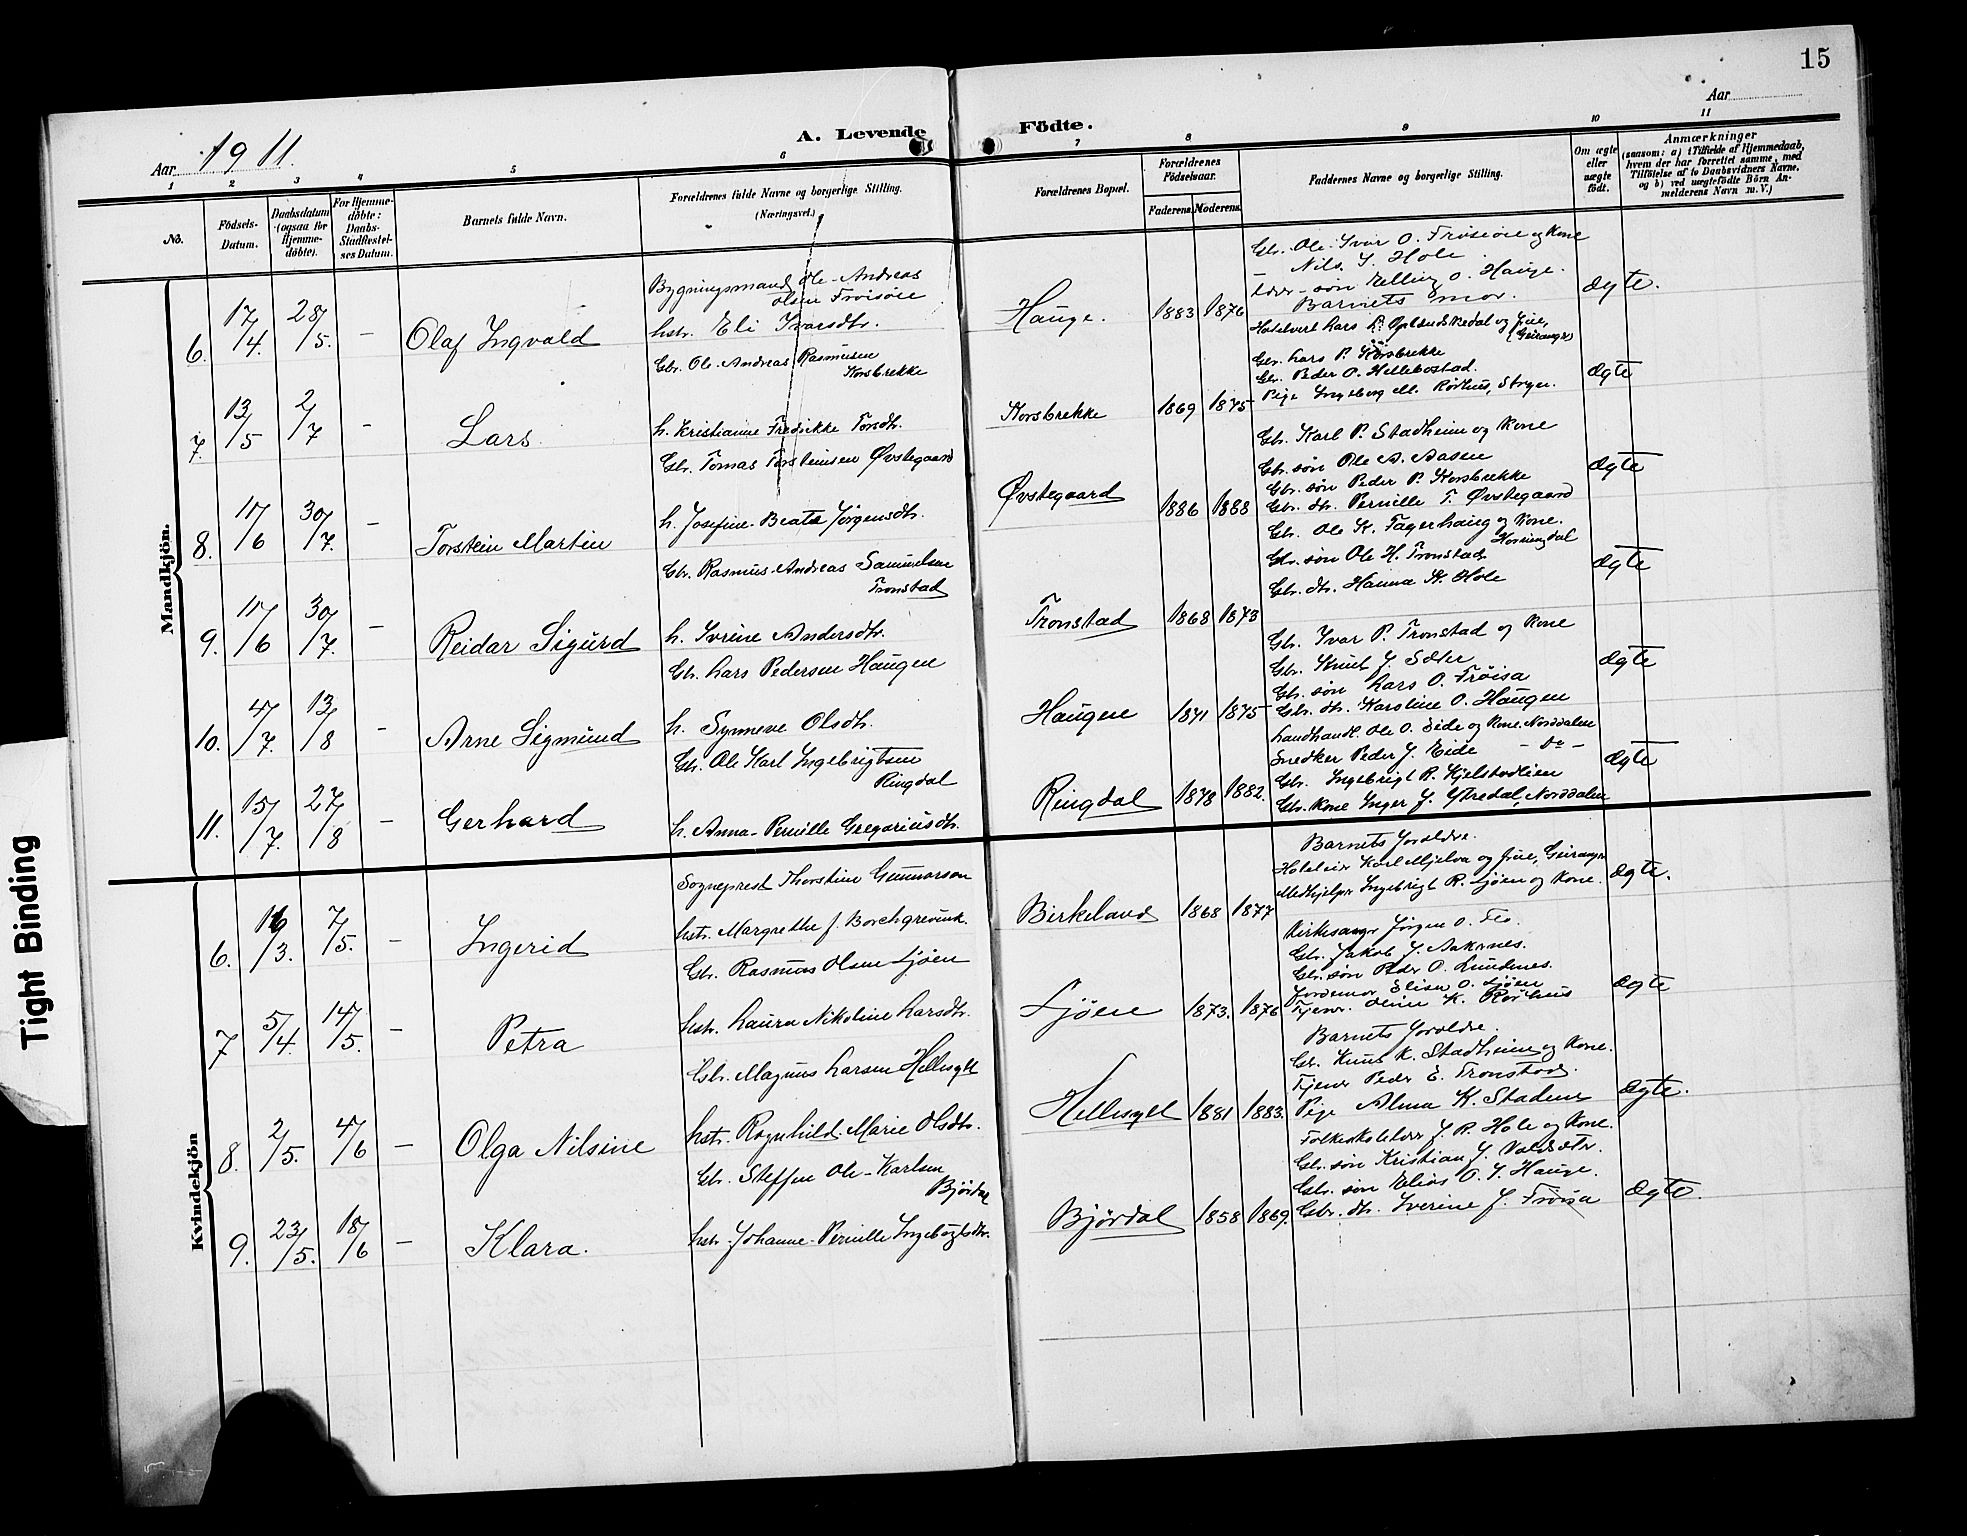 15
Aar 1911.
A. Levende Födte.
Aar
1 2 3 4 5 6 7 8 9 10 11
No.
Födsels-Datum.
Daabsdatum (ogsaa for Hjemme-döbte).
For Hjemme-döbte: Daabs-Stadfæstel-ses Datum.
Barnets fulde Navn.
Forældrenes fulde Navne og borgerlige Stilling.
(Næringsvei.)
Forældrenes Bopæl.
Forældrenes Födselsaar.
Faderens. Moderens.
Faddernes Navne og borgerlige Stilling.
Om ægte eller uægte födt.
Anmærkninger
(saasom: a) i Tilfælde af Hjemmedaab,
hvem der har forrettet samme, med
Tilföielse af to Daabsvidners Navne,
og b) ved uægtefödte Börn An-
melderens Navn m. V.)
Mandkjön.
6. 17/4. 28/5. – Olaf Ingvald
Bygningsmand Ole Andreas
Olsen Frøisøie
hstr. Eli Ivarsdtr.
Hauge. 1883 1876
Gbr. Ole Ivar O. Frøisøie og Kone
Nils J. Hole
søn Elling O. Hauge.
Barnets mor.
Ægte.
7. 13/5 2/7 – Lars.
Gbr. Ole Andreas Rasmusen
Korsbrekke
h. Kristianne Fredrikke Torsdtr.
Korsbrekke 1869 1875
Hotelvert Lars L. Oplændskedal og frue,
(Geiranger)
Gbr. Lars P. Korsbrekke
Gbr. Peder O. Hellebostad.
Pige Ingeborg M. Rørhus, Stryn.
Ægte
8. 11/6 30/7. – Torstein Martin
Gbr. Tomas Torsteinsen Øvstegaard
h. Josefine Beate Jørgensdtr.
Øvstegaard 1886 1888
Gbr. Karl P. Stadheim og Kone
Gbr. søn Ole A. Aasen
Gbr. søn Peder P. Korsbrekke
Gbr. dtr. Pernille T. Øvstegaard
Ægte
9. 11/6 30/7. – Reidar Sigurd
Gbr. Rasmus Andreas Samuelsen
Tronstad
h. Ivrine Andersdtr.
Tronstad 1868 1873
Gbr. Ole K. Fagerhaug og Kone.
Horningdal
Gbr. søn Ole H. Tronstad
Gbr. dtr. Hanna K. Hole
Ægte
10. 4/7. 13/8 – Arne Sigmund
Gbr. Lars Pedersen Haugen
h. Synneve Olsdtr.
Haugen 1871 1875
Gbr. Ivar P. Tronstad og Kone
Gbr. Knut J. Sæter
Gbr. søn Lars O. Frøisa
Gbr. dtr. Karoline O. Haugen
Ægte
11. 15/7. 27/8 – Gerhard
Gbr. Ole Karl Ingebrigtsen
Ringdal
h. Anna Pernille Gregoriusdtr.
Ringdal 1878 1882.
Landhandl. Ole O. Eide og Kone. Norddalen
Snedker Peder J. Eide – Do –
Gbr. Ingebrigt R. Kjelstadlien
Gbr. Kone Inger J. Ytredal, Norddalen
Ægte
Kvindekjön
6. 16/3. 7/5. – Ingerid
Sogneprest Thorstein Gunnarson
hstr. Margrethe f. Borchgrevink.
Birkeland 1868 1877
Barnets Foreldre.
Hoteleier Karl Mjelva og frue, Geiranger
Medhjelper Ingebrigt R. Ljøen og Kone.
Ægte.
7 5/4. 14/5. – Petra
Gbr. Rasmus Olsen Ljøen
hstr. Laura Nikoline Larsdtr.
Ljøen 1873. 1876
Kirkesanger Jørgen O. Flo.
Gbr. Jakob J. Aakernes.
Gbr. søn Peder O. Lundenes.
Jordemor Elisa O. Ljøen
Tjener. Oline K. Rørhus
Ægte
8. 2/5. 4/6 – Olga Nilsine
Gbr. Magnus Larsen Hellesylt
hstr. Ragnhild Marie Olsdtr.
Hellesylt 1881 1883.
Barnets Foreldre.
Gbr. Knut K. Stadheim og Kone.
Tjener Peder E. Tronstad.
Pige Alma K. Stadem
Ægte.
9. 23/5. 18/6 – Klara.
Gbr. Steffen Ole Karlsen
Bjørdal
hstr. Johanne Pernille Ingebrigtsdtr.
Bjørdal 1858 1869.
Folkeskolelærer J. P. Hole og Kone.
Gbr. søn Kristian J.
Gbr. søn Elias O. J. Hauge.
Gbr. dtr. Iverine J. Frøisa
Ægte.
Tight Binding